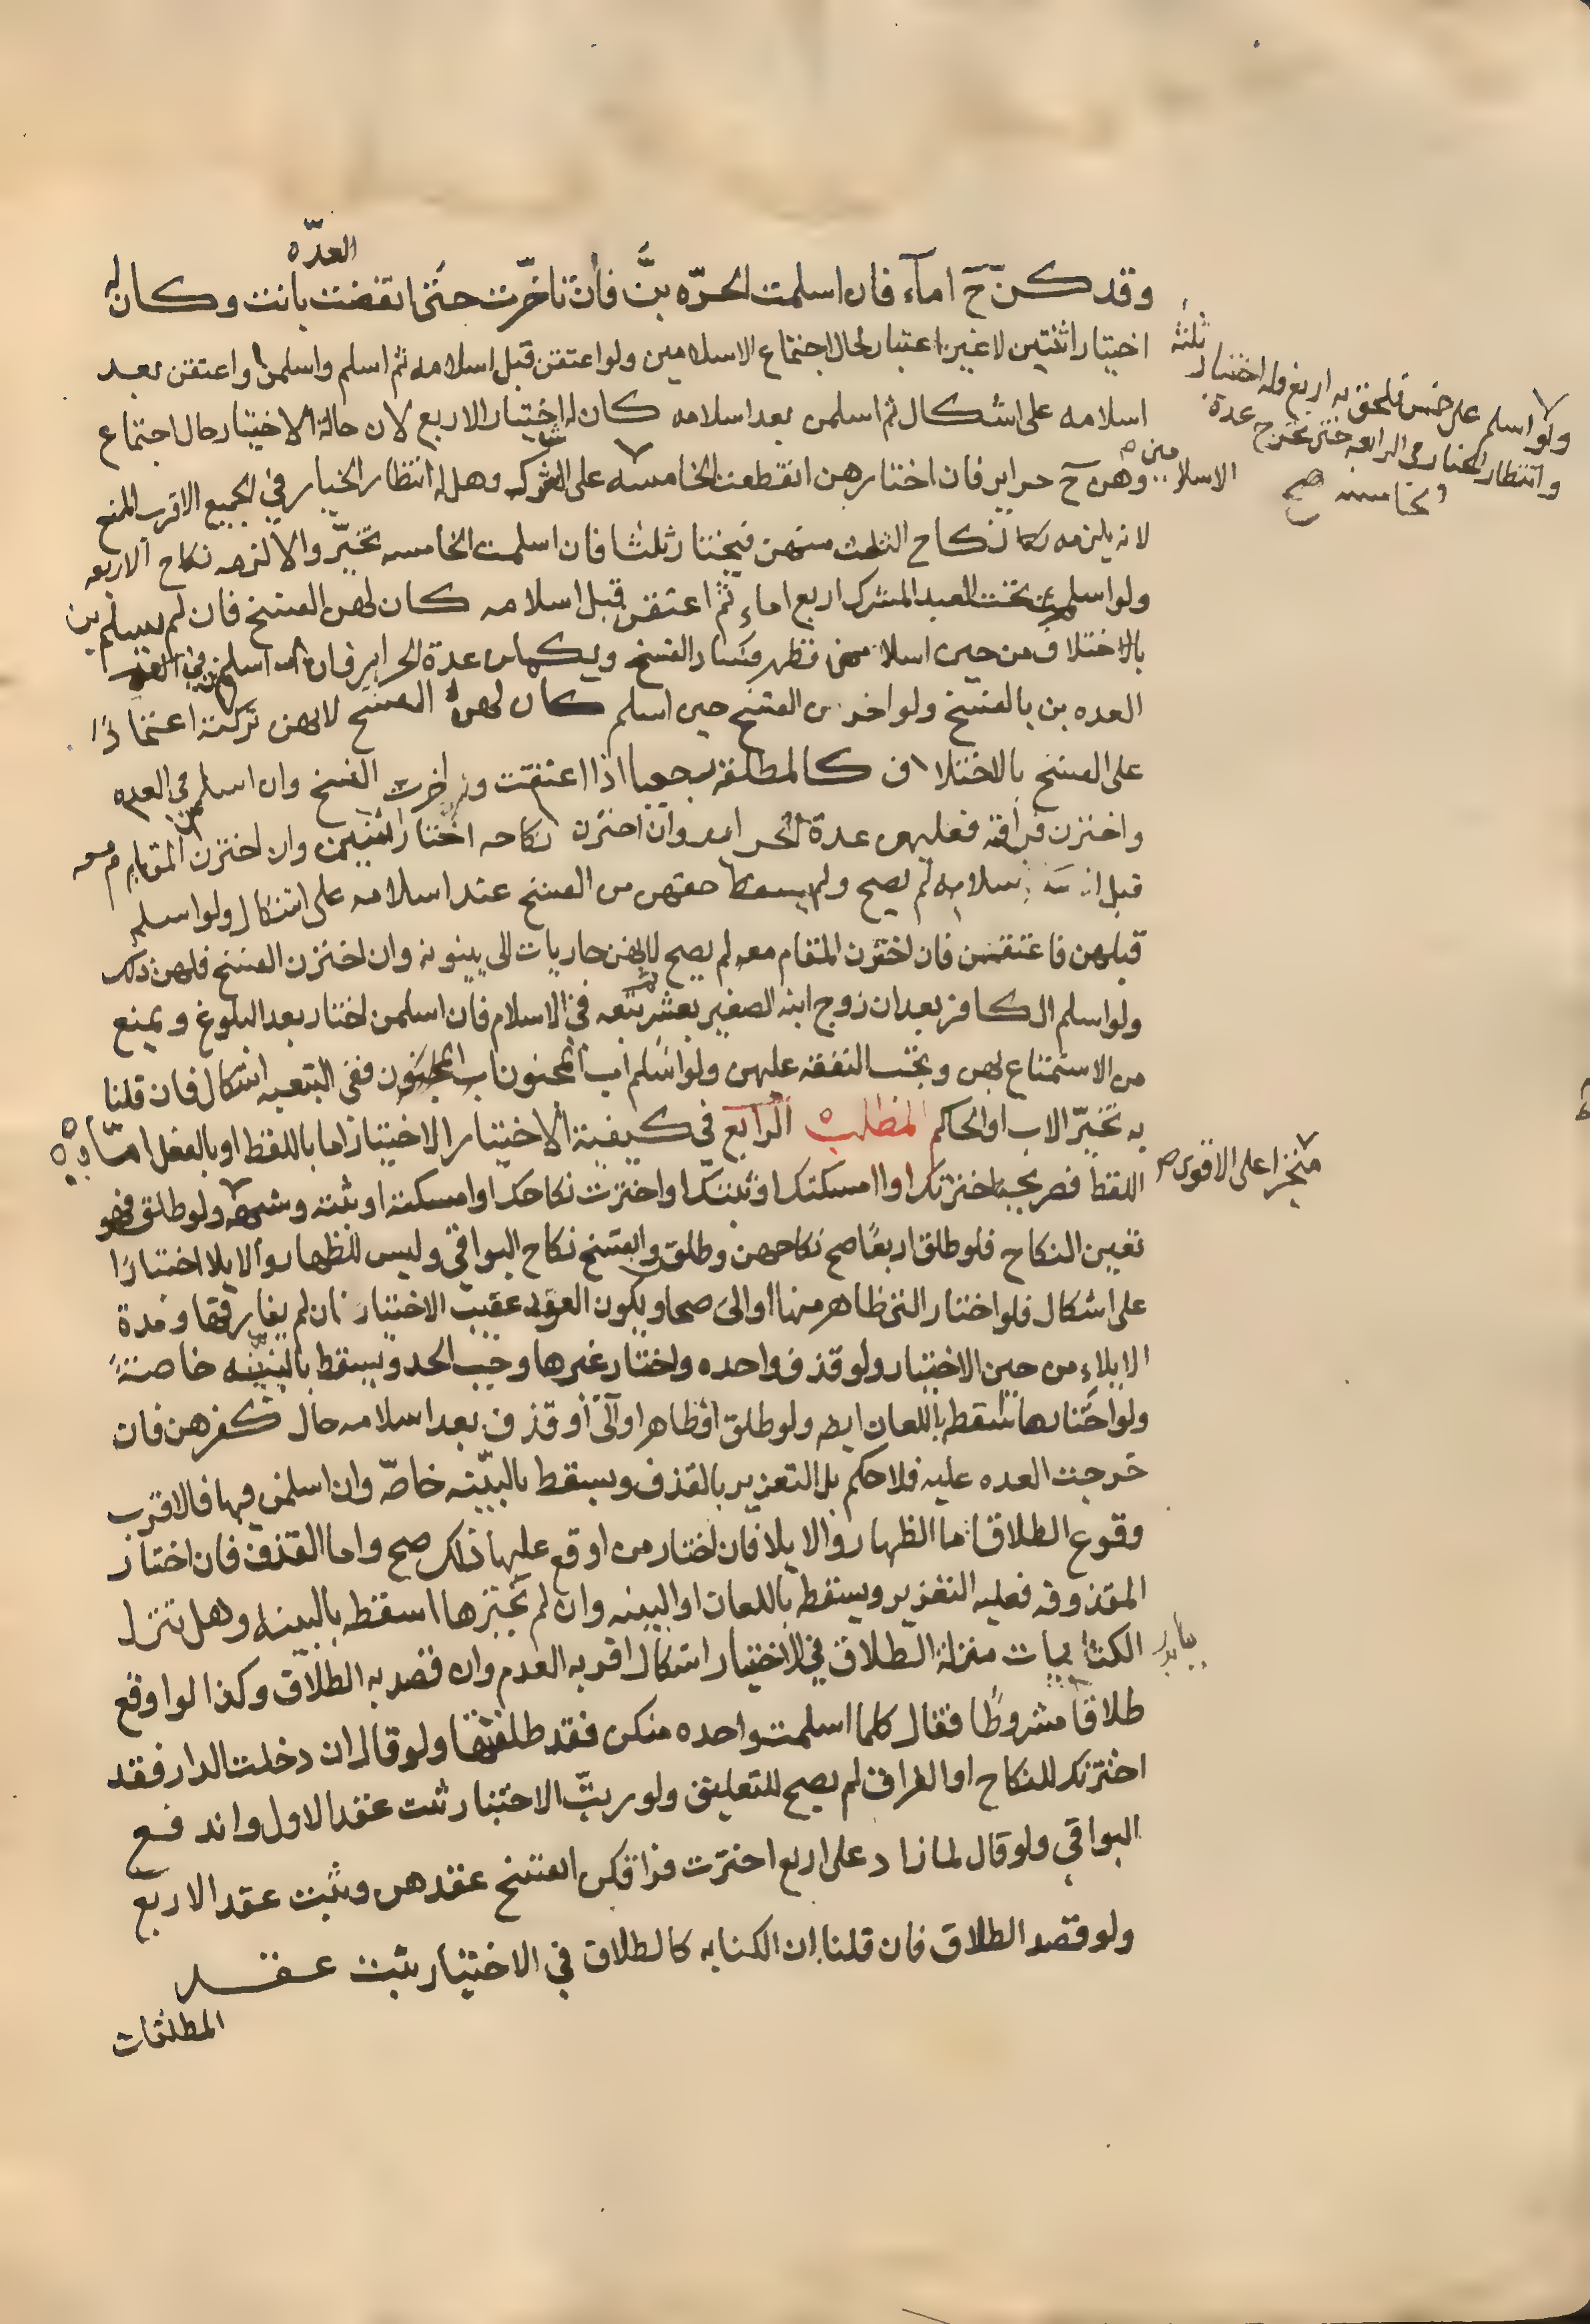 العدّه
وقد كنّ ح امآء فان اسلمت الحرّه بنّ فان تاخّرت حتى انقضت بانت وكان له
اختيار اثنتين لاغير اعتبار لحال اجتماع الاسلامين ولو اعتقن قبل اسلامه ثم اسلم واسلمن او اعتقن بعد
اسلامه على اشكال ثم اسلمن بعد اسلامه كان له اختيار الاربع لان حالة الاختيار حال اجتماع
الاسلامين وهن ح حراير فان اختارهن انقطعت الخامسه على الشركه وهل له انتظار الخيار في الجميع الاقرب المنع
لانه يلزمه نكاح الثلث منهن فيختار ثلثا فان اسلمت الخامسه تخيّر والا لزمه نكاح الاربعه
ولو اسلم تحت العبد المشرك اربع اماء ثم اعتقن قبل اسلامه كان لهن الفسخ فان لم يسلم بن
بالاختلاف من حين اسلامهن فظهر فساد الفسخ ويكملن عدة الحراير فان اسلم في
العده بن بالفسخ ولو اخرن الفسخ حين اسلم كان لهن الفسخ لانهن تركنه اعتمادًا
على الفسخ بالاختلاف كالمطلقة رجعيا اذا اعتقت واخرت الفسخ وان اسلمن في العده
واخترن فراقه فعليهن عدة الحراير وان اخترن نكاحه اختار اثنتين وان اخترن المقام معه
قبل اسلامه لم يصح ولم يسقط حقهن من الفسخ عند اسلامه على اشكال ولو اسلم
قبلهن فاعتقهن فان اخترن المقام معه لم يصح لانهن جاريات الى بينونه وان اخترن الفسخ فلهن ذلك
ولو اسلم الكافر بعد ان زوج ابنه الصغير بعشر تبعه في الاسلام فان اسلمن اختار بعد البلوغ ويمنع
من الاستمتاع بهن وتجب النفقه عليهن ولو اسلم اب المجنون ففي التبعيه اشكال فان قلنا
به تخيّر الاب او الحاكم المطلب الرابع في كيفية الاختيار الاختيار اما باللفظ او بالفعل امّا
اللفظ فصريحه اخترتك او امسكتك او ثبتك او اخترت نكاحك او امسكته او ثبته وشبهه ولو طلق فهو
تعيين النكاح فلو طلق اربعًا صح نكاحهن وطلقن وانفسخ نكاح البواقي وليس للظهار والايلا اختيارًا
على اشكال فلو اختار التي ظاهر منها او الى صحا ويكون العود عقيب الاختيار ان لم يفارقها ومدة
الايلاء من حين الاختيار ولو قذف واحده واختار غيرها وجب الحد ويسقط بالبيّنه خاصةً
ولو اختارها سقط باللعان ايضا ولو طلق او ظاهر او آلى او قذف بعد اسلامه حال كفرهن فان
خرجت العده عليه فلا حكم بل التعزير بالقذف ويسقط بالبيّنه خاصّه وان اسلمن فيها فالاقرب
وقوع الطلاق اما الظهار والايلا فان اختار من اوقع عليها ذلك صح واما القذف فان اختار
المقذوفه فعليه التعزير ويسقط باللعان او البينه وان لم يخترها اسقط بالبينه وهل تتنزل
الكنايات منزلة الطلاق في الاختيار اشكال اقربه العدم وان قصد به الطلاق وكذا لو اوقع
طلاقا مشروطًا فقال كلما اسلمت واحده منكن فقد طلقتها ولو قال ان دخلت الدار فقد
اخترتك للنكاح او الفراق لم يصح للتعليق ولو رتبّ الاختيار ثبت عقد الاول واندفع
البواقي ولو قال لما زاد على اربع اخترت فراقكن انفسخ عقدهن وثبت عقد الاربع
ولو قصد الطلاق فان قلنا ان الكنايه كالطلاق في الاختيار ثبت عقد
المطلقات
ثلثه
ولو اسلم على خمس فلحق به اربع فله اختيار
وانتظار الخيار في الرابعه حتى تخرج عدة
الخامسه صح
منجزا على الاقوى